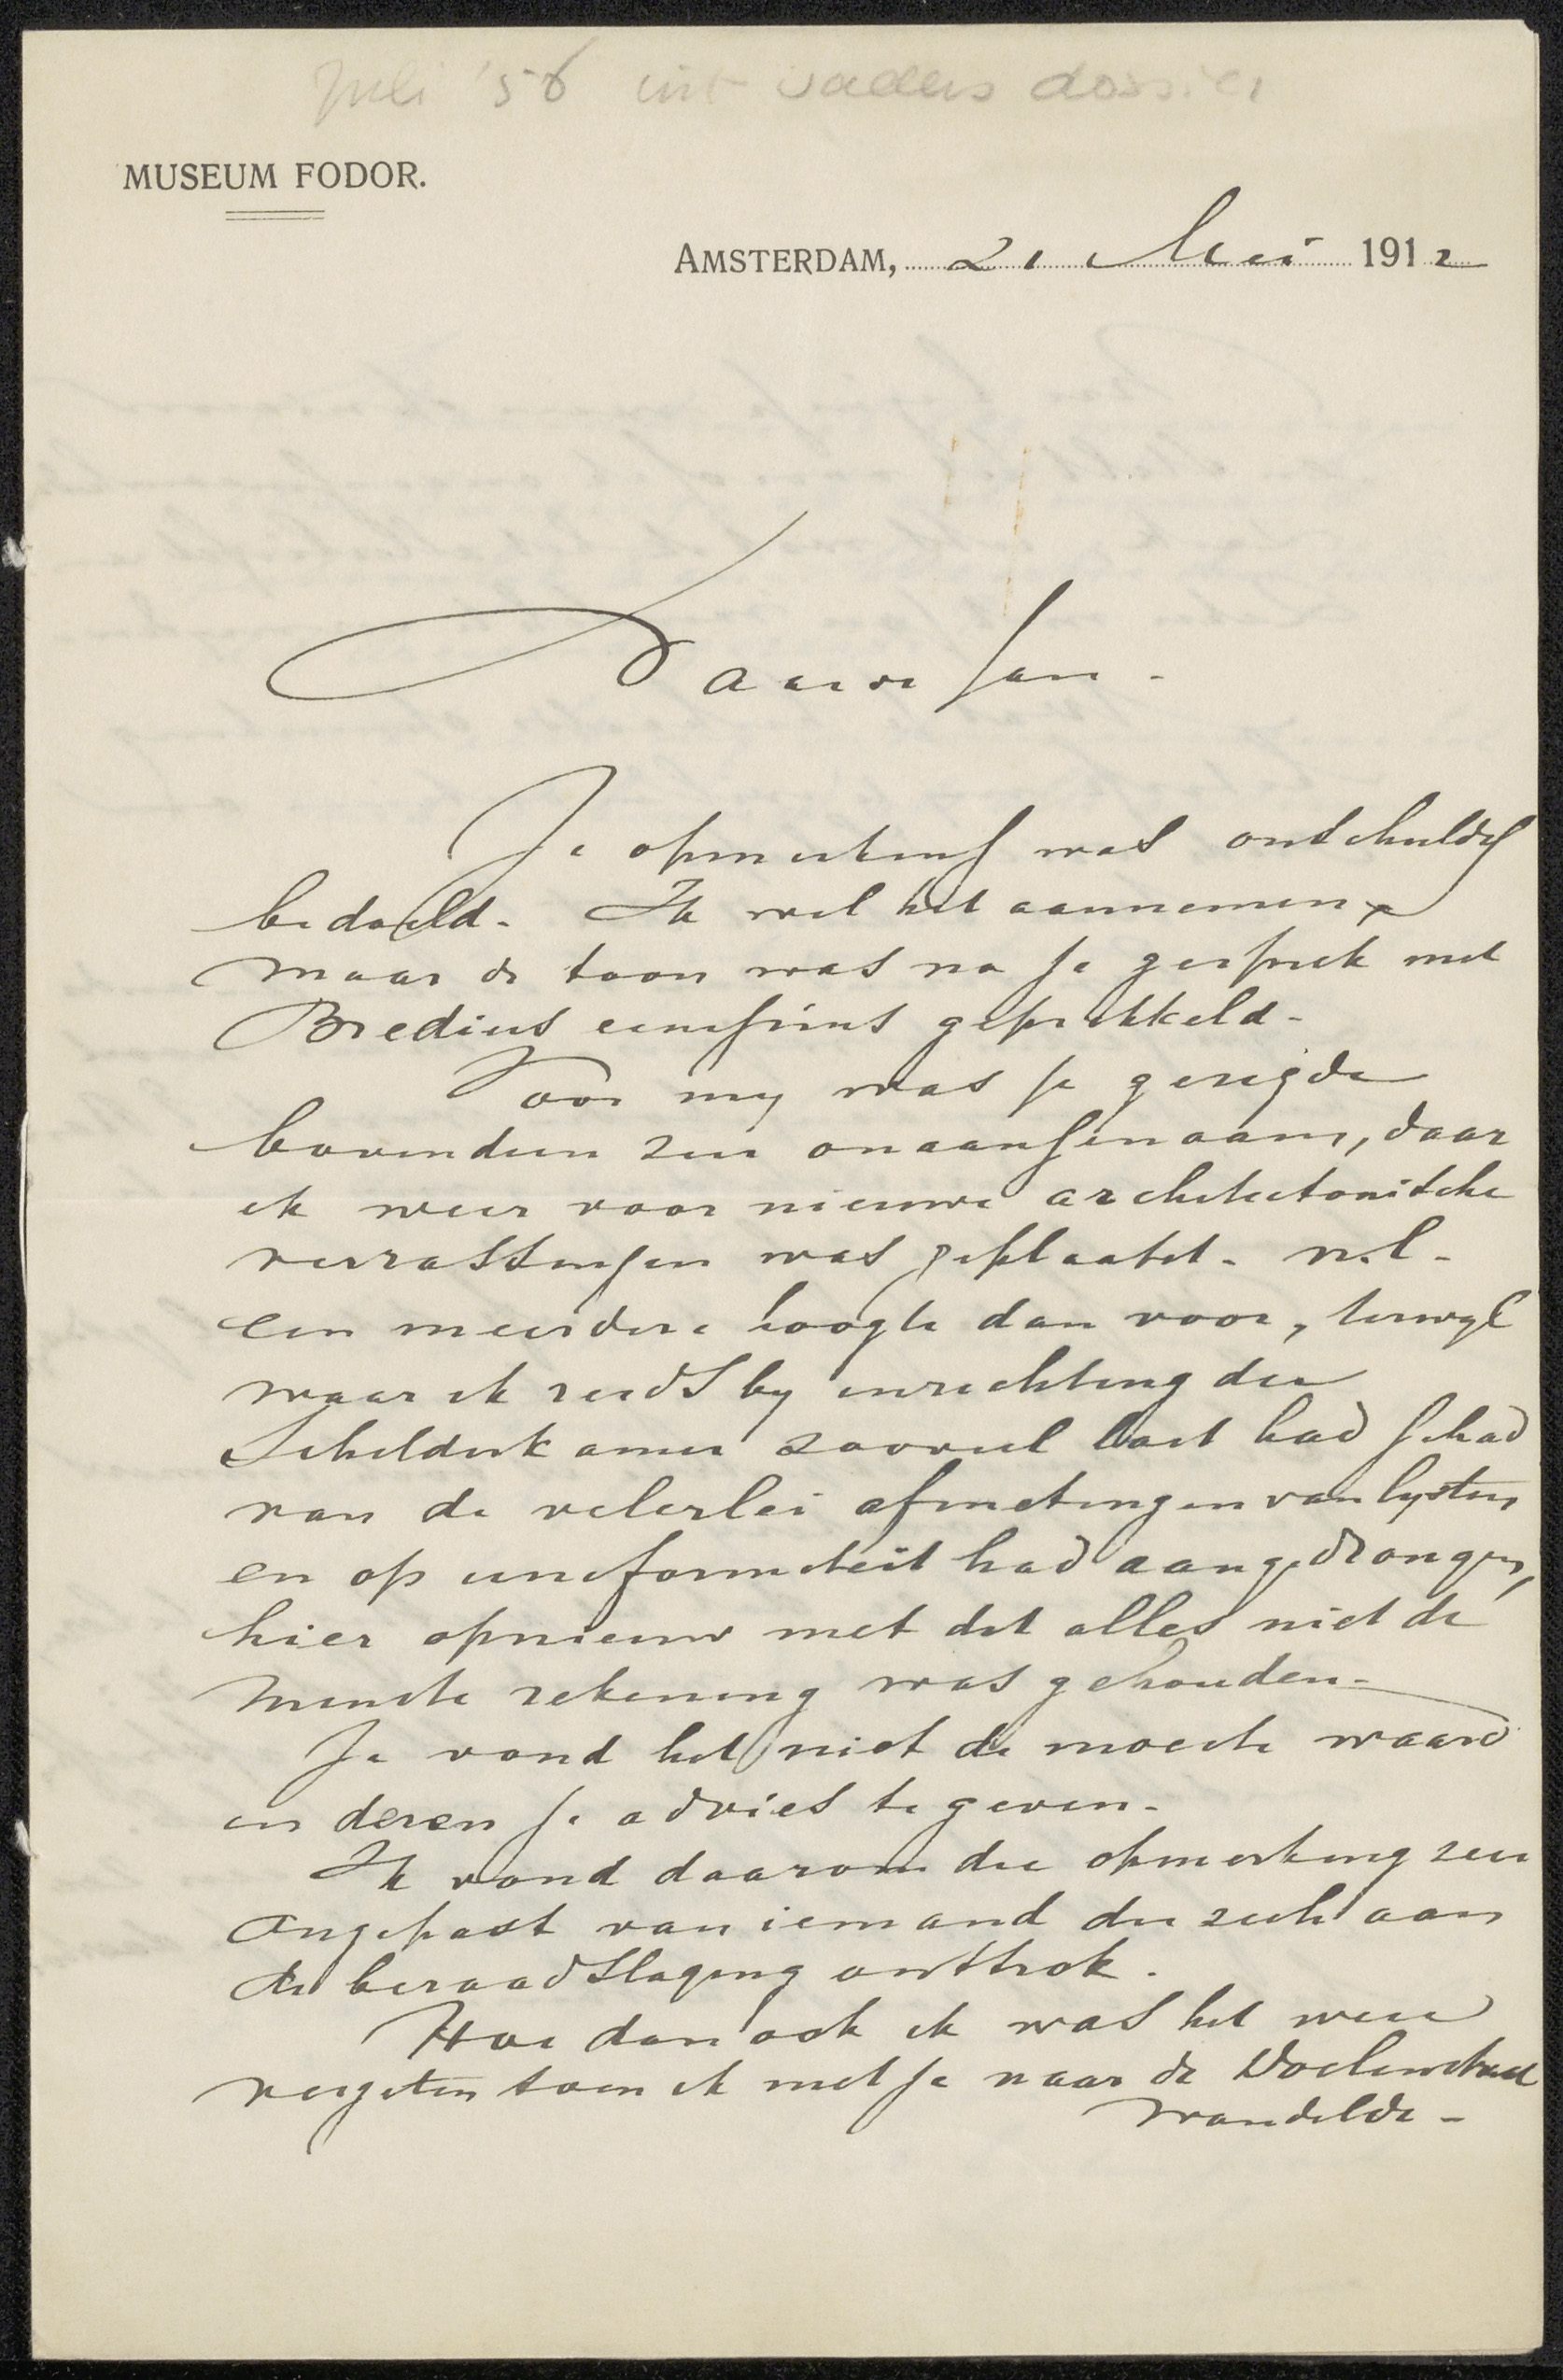 Juli '56 uit vaders dossier
MUSEUM FODOR.
AMSTERDAM, 21 Mei 1912
Waarde Jan.
Je opmerking was onschuldig
bedoeld. Ik wil het aannemen,
maar de toon was na je gesprek met
Bredius eenigszins geprikkeld.
Voor my was je gezegde
bovendien zeer onaangenaam, daar
ik weer voor nieuwe architectonische
verrassingen was geplaatst. n.l.
een meerdere hoogte dan voor, terwyl
waar ik reeds by inrichting der
Schilderkamer zooveel last had gehad
van de velerlei afmetingen van lysten
en op uniformiteit had aangedrongen,
hier opnieuw met dit alles niet de
minste rekening was gehouden.
Je vond het niet de moeite waard
in dezen je advies te geven.
Ik vond daarom die opmerking zeer
ongepast van iemand die zich aan
de beraadslaging onttrok.
Hoe dan ook ik was het weer
vergeten toen ik met je naar de Doelenstraat
wandelde.